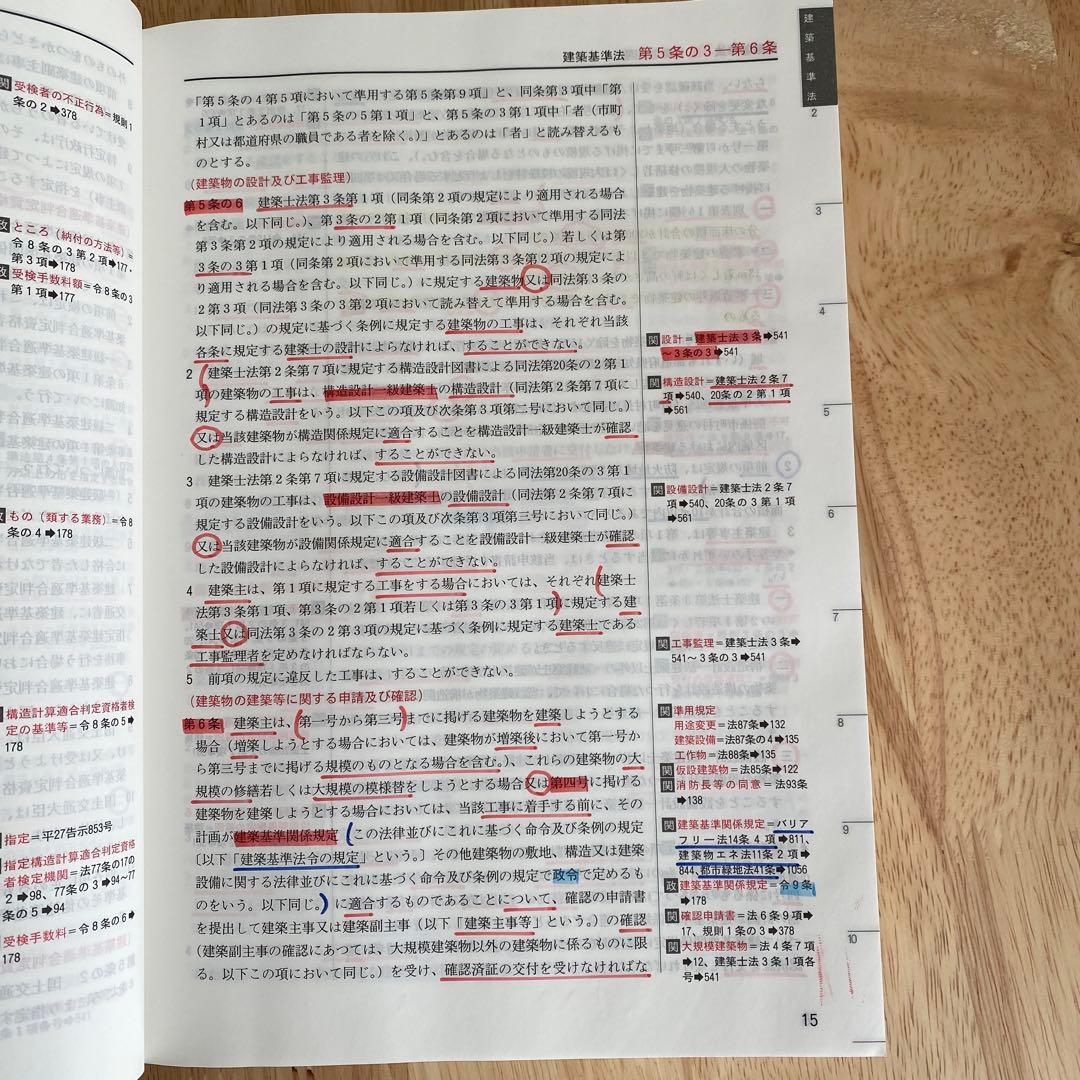 建築基準法　第5条の3―第6条
建築基準法
「第5条の4第5項において準用する第5条第9項」と、同条第3項中「第
1項」とあるのは「第5条の5第1項」と、第5条の3第1項中「者（市町
村又は都道府県の職員である者を除く。）」とあるのは「者」と読み替えるも
のとする。
（建築物の設計及び工事監理）
第5条の6　建築士法第3条第1項（同条第2項の規定により適用される場合
を含む。以下同じ。）、第3条の2第1項（同条第2項において準用する同法
第3条第2項の規定により適用される場合を含む。以下同じ。）若しくは第
3条の3第1項（同条第2項において準用する同法第3条第2項の規定によ
り適用される場合を含む。以下同じ。）に規定する建築物又は同法第3条の
2第3項（同法第3条の3第2項において読み替えて準用する場合を含む。
以下同じ。）の規定に基づく条例に規定する建築物の工事は、それぞれ当該
各条に規定する建築士の設計によらなければ、することができない。
2　建築士法第2条第7項に規定する構造設計図書による同法第20条の2第1
項の建築物の工事は、構造設計一級建築士の構造設計（同法第2条第7項に
規定する構造設計をいう。以下この項及び次条第3項第二号において同じ。）
又は当該建築物が構造関係規定に適合することを構造設計一級建築士が確認
した構造設計によらなければ、することができない。
3　建築士法第2条第7項に規定する設備設計図書による同法第20条の3第1
項の建築物の工事は、設備設計一級建築士の設備設計（同法第2条第7項に
規定する設備設計をいう。以下この項及び次条第3項第三号において同じ。）
又は当該建築物が設備関係規定に適合することを設備設計一級建築士が確認
した設備設計によらなければ、することができない。
4　建築主は、第1項に規定する工事をする場合においては、それぞれ建築士
法第3条第1項、第3条の2第1項若しくは第3条の3第1項に規定する建
築士又は同法第3条の2第3項の規定に基づく条例に規定する建築士である
工事監理者を定めなければならない。
5　前項の規定に違反した工事は、することができない。
（建築物の建築等に関する申請及び確認）
第6条　建築主は、第一号から第三号までに掲げる建築物を建築しようとする
場合（増築しようとする場合においては、建築物が増築後において第一号か
ら第三号までに掲げる規模のものとなる場合を含む。）、これらの建築物の大
規模の修繕若しくは大規模の模様替をしようとする場合又は第四号に掲げる
建築物を建築しようとする場合においては、当該工事に着手する前に、その
計画が建築基準関係規定（この法律並びにこれに基づく命令及び条例の規定
〔以下「建築基準法令の規定」という。〕その他建築物の敷地、構造又は建築
設備に関する法律並びにこれに基づく命令及び条例の規定で政令で定めるも
のをいう。以下同じ。）に適合するものであることについて、確認の申請書
を提出して建築主事又は建築副主事（以下「建築主事等」という。）の確認
（建築副主事の確認にあつては、大規模建築物以外の建築物に係るものに限
る。以下この項において同じ。）を受け、確認済証の交付を受けなければな
関 設計＝建築士法3条➡541
～3条の3➡541
関 構造設計＝建築士法2条7
項➡540、20条の2第1項
➡561
関 設備設計＝建築士法2条7
項➡540、20条の3第1項
➡561
関 工事監理＝建築士法3条➡
541～3条の3➡541
関 準用規定
用途変更＝法87条➡132
建築設備＝法87条の4➡135
工作物＝法88条➡135
関 仮設建築物＝法85条➡122
関 消防長等の同意＝法93条
➡138
関 建築基準関係規定＝バリア
フリー法14条4項➡811、
建築物エネ法11条2項➡
844、都市緑地法41条➡1056
政 建築基準関係規定＝令9条
➡178
関 確認申請書＝法6条9項➡
17、規則1条の3➡378
関 大規模建築物＝法4条7項
➡12、建築士法3条1項各
号➡541
2
3
4
5
6
7
8
9
10
15
関 受検者の不正行為＝規則1
条の2➡378
政 ところ（納付の方法等）＝
令8条の3第2項➡177、
第3項➡178
政 受検手数料額＝令8条の3
第1項➡177
政 もの（類する業務）＝令8
条の4➡178
構造計算適合判定資格者検
定の基準等＝令8条の5➡
178
指定＝平27告示853号
指定構造計算適合判定資格
者検定機関＝法77条の17の
2➡98、77条の3➡94～77
条の5➡94
受検手数料＝令8条の6➡
178